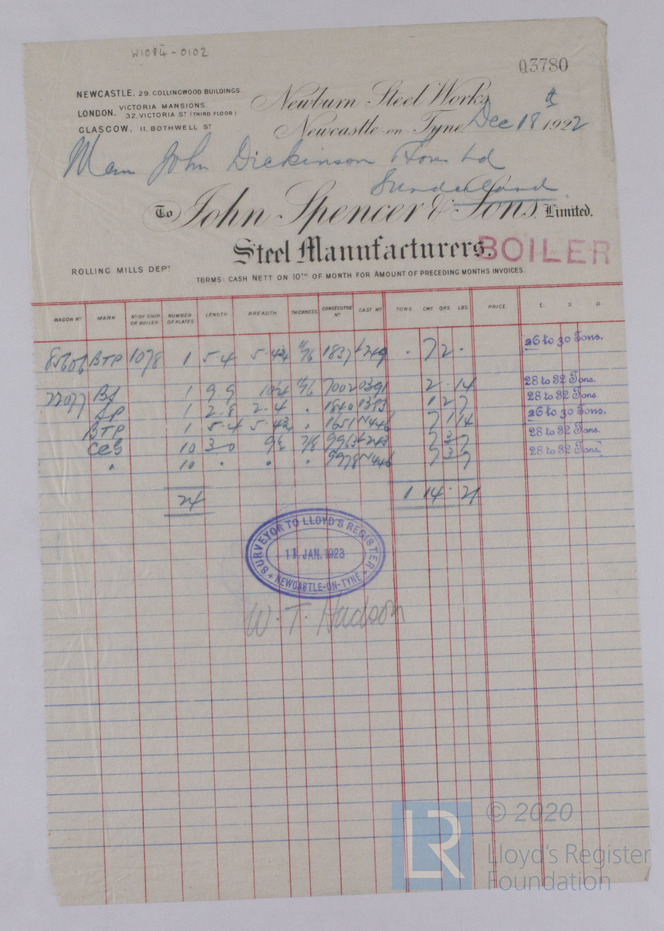 W1084-0102
03780
NEWCASTLE. 29. COLLINGWOOD BUILDINGS.
LONDON. VICTORIA MANSIONS. 32, VICTORIA ST (THIRD FLOOR)
GLASGOW, 11, BOTHWELL ST
Newburn Steel Works
Newcastle-on-Tyne, Dec 18th 1922
John Dickinson Sons Ld
Sunderland
To John Spencer & Sons, Limited.
Steel Manufacturers.
BOILER
ROLLING MILLS DEPT
TERMS: CASH NETT ON 10TH OF MONTH FOR AMOUNT OF PRECEDING MONTHS INVOICES.
WAGON NO MARK NO OF SHIP OR BOILER NUMBER OF PLATES LENGTH BREADTH THICKNESS CONSECUTIVE NO CAST NO TONS. CWT QRS LBS PRICE. £ S. D.
BTP 1078 1 5 4 7 2 . 26 to 30 Tons.
1 9 9 2 . 14 28 to 32 Tons.
1 2.8 2.4 1 2 7 28 to 32 Tons.
BTP 1 5 4 7 1 14 26 to 30 Tons.
CCS 10 3 0 28 to 32 Tons.
" 10 28 to 32 Tons.
24 1 14 . 21
SURVEYOR TO LLOYD'S REGISTER
11 JAN. 1923
NEWCASTLE-ON-TYNE
W. T. Hudson
LR
© 2020
Lloyd's Register
Foundation